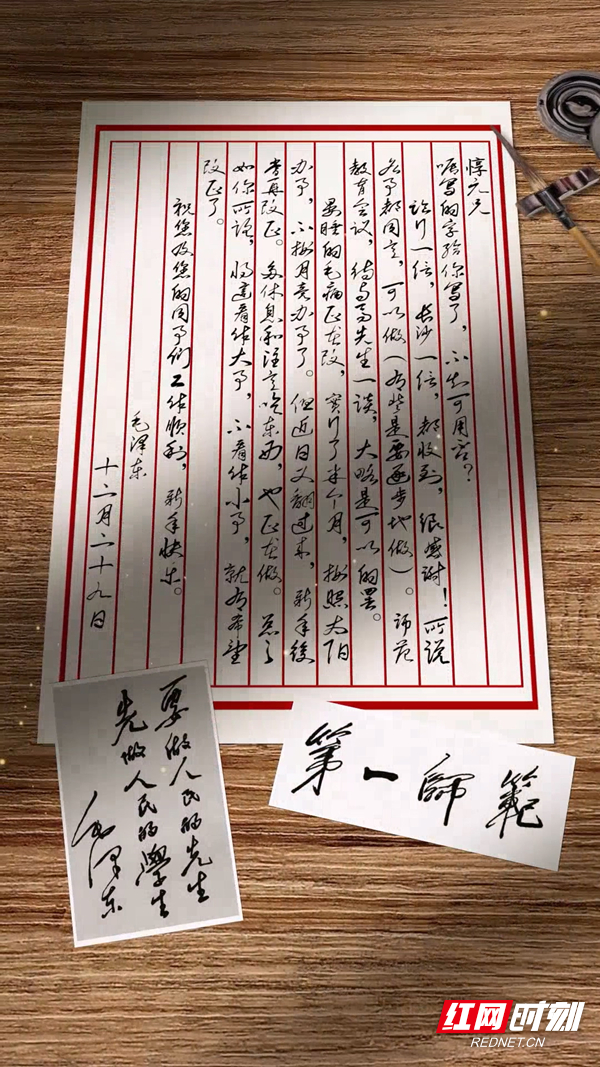 惇元兄
嘱写的字给你写了，不知可用否？
临行一信，长沙一信，都收到，很感谢！所说
各事都同意，可以做（有些是要逐步地做）。师范
教育会议，待与马先生一谈，大略是可以的罢。
晏睡的毛病正在改，实行了半个月，按照太阳
办事，不按月亮办事了。但近日又翻过来，新年後
当再改正。多休息和注意吃东西，也正在做。总之
如你所说，将这看作大事，不看作小事，就有希望
改正了。
祝您及您的同事们工作顺利，新年快乐。
毛泽东
十二月二十九日
要做人民的先生
先做人民的學生
毛泽东
第一師範
红网时刻
REDNET.CN